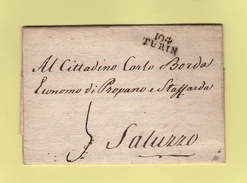 104
TURIN
Al Cittadino Carlo Borda
Economo di Propano e Staffarda
Saluzzo